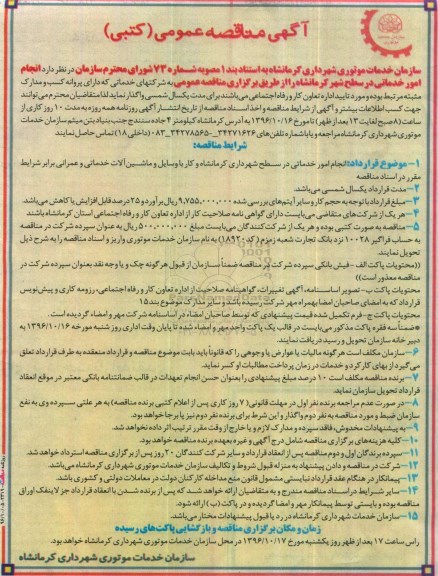 آگهی مناقصه عمومی (کتبی)
سازمان خدمات موتوری شهرداری کرمانشاه به استناد بند ۱ مصوبه شماره ۷۳ شورای محترم سازمان در نظر دارد انجام
امور خدماتی در سطح شهر کرمانشاه را از طریق برگزاری مناقصه عمومی به شرکتهای خدماتی که دارای پروانه کسب و مدارک
مثبته مرتبط بوده و مورد تایید اداره تعاون کار و رفاه اجتماعی می‌باشند برای مدت یکسال شمسی واگذار نماید لذا متقاضیان محترم می‌توانند
جهت کسب اطلاعات بیشتر و آگهی از شرایط مناقصه و اخذ اسناد مناقصه از تاریخ انتشار آگهی روزنامه همه روزه به مدت ۱۰ روز کاری از
ساعت (۸ صبح لغایت ۱۳ بعد از ظهر) تا مورخ ۱۳۹۶/۱۰/۱۶ به آدرس کرمانشاه کیلومتر ۴ جاده سنندج جنب بنیاد بتن میثم سازمان خدمات
موتوری شهرداری کرمانشاه مراجعه و یا با شماره تلفن های ۳۴۲۷۱۶۲۶-۳۴۲۷۸۵۶۵-۰۸۳ (داخلی ۱۸) تماس حاصل نمایند
شرایط مناقصه:
۱-موضوع قرارداد: انجام امور خدماتی در سطح شهرداری کرمانشاه و کار با وسایل و ماشین آلات خدماتی و عمرانی برابر شرایط
مقرر در اسناد مناقصه
۲-مدت قرارداد یکسال شمسی می‌باشد.
۳-مبلغ قرارداد با توجه به حجم کار و سایر آیتم های بررسی شده ۹,۷۵۵,۰۰۰,۰۰۰ ریال برآورد و ۲۵ درصد قابل افزایش یا کاهش می‌باشد.
۴-هر یک از شرکت های متقاضی می‌بایست دارای گواهی نامه صلاحیت کار از اداره تعاون کار و رفاه اجتماعی استان کرمانشاه باشند
۵-مناقصه به صورت کتبی بوده و هر یک از شرکت کنندگان می‌بایست مبلغ ۵۰۰,۰۰۰,۰۰۰ ریال به عنوان سپرده شرکت در مناقصه
به حساب فراگیر ۱۰۰۲۸ نزد بانک تجارت شعبه زمزم (کد ۱۸۹۲۰) به نام سازمان خدمات موتوری واریز و اسناد مناقصه را به شرح ذیل
تحویل نمایند
((محتویات پاکت الف - فیش بانکی سپرده شرکت در مناقصه ضمناً سازمان از قبول هر گونه چک و یا وجه نقد بعنوان سپرده شرکت در
مناقصه معذور است))
محتویات پاکت ب - تصویر اساسنامه، آگهی تغییرات، گواهینامه صلاحیت از اداره تعاون کار و رفاه اجتماعی، رزومه کاری و پیش نویس
قرارداد که به امضای صاحبان امضا بهمراه مهر شرکت رسیده باشد و سایر مدارک موضوع بند ۱۵
محتویات پاکت ج - فرم تکمیل شده قیمت پیشنهادی که توسط صاحبان امضاء در اساسنامه شرکت مهر و امضاء گردیده است.
*ضمناً سه فقره پاکت مذکور می‌بایست در قالب یک پاکت واحد مهر و امضاء شده تا پایان وقت اداری روز شنبه مورخه ۱۳۹۶/۱۰/۱۶ به
دبیر خانه سازمان تحویل و رسید دریافت نمایند.
۶-سازمان مکلف است هر گونه مالیات یا عوارض یا وجوهی را که قانوناً باید بابت موضوع مناقصه و قرارداد منعقده به طرف قرارداد تعلق
می‌گیرد از بهای کارکرد و خدمات در زمان پرداخت مطالبات او کسر نماید.
۷-برنده مناقصه مکلف است ۱۰ درصد مبلغ پیشنهادی را بعنوان حسن انجام تعهدات در قالب ضمانتنامه بانکی معتبر در موقع انعقاد
قرارداد تحویل سازمان نماید.
۸-در صورت عدم مراجعه برنده نفر اول در مهلت قانونی (۷ روز کاری پس از اعلام کتبی برنده مناقصه) به هر علتی سپرده وی به نفع
سازمان ضبط و مورد مناقصه به نفر دوم واگذار و این شرط برای برنده نفر دوم نیز پا برجا خواهد بود.
۹-به پیشنهادات مخدوش، فاقد سپرده و مدارک لازم و یا خارج از وقت مقرر ترتیب اثر داده نخواهد شد.
۱۰-کلیه هزینه‌های برگزاری مناقصه شامل درج آگهی و غیره بعهده برنده مناقصه خواهد بود.
۱۱-سپرده برندگان اول و دوم مناقصه پس از انعقاد قرارداد و سایر شرکت کنندگان ۲۰ روز پس از برگزاری مناقصه استرداد خواهد شد.
۱۲-شرکت در مناقصه و دادن پیشنهاد به منزله قبول شروط و تکالیف سازمان خدمات موتوری شهرداری کرمانشاه می‌باشد.
۱۳-پیمانکار در هنگام عقد قرارداد نبایستی مشمول قانون منع مداخله کارکنان دولت در معاملات دولتی و کشوری باشد.
۱۴-سایر شرایط در اسناد مناقصه مندرج و به متقاضیان ارائه خواهد شد که پس از برنده شدن با انعقاد قرارداد جز لاینفک اوراق
مناقصه بوده و بایستی توسط پیمانکار مهر و امضا گردیده و در پاکت (ب) ارائه شود.
۱۵-سازمان خدمات شهرداری کرمانشاه در رد یا قبول پیشنهادات مختار می‌باشد.
زمان و مکان برگزاری مناقصه و بازگشایی پاکت‌های رسیده
راس ساعت ۱۷ بعد از ظهر روز یکشنبه مورخ ۱۳۹۶/۱۰/۱۷ در محل سازمان خدمات موتوری شهرداری کرمانشاه خواهد بود.
سازمان خدمات موتوری شهرداری کرمانشاه